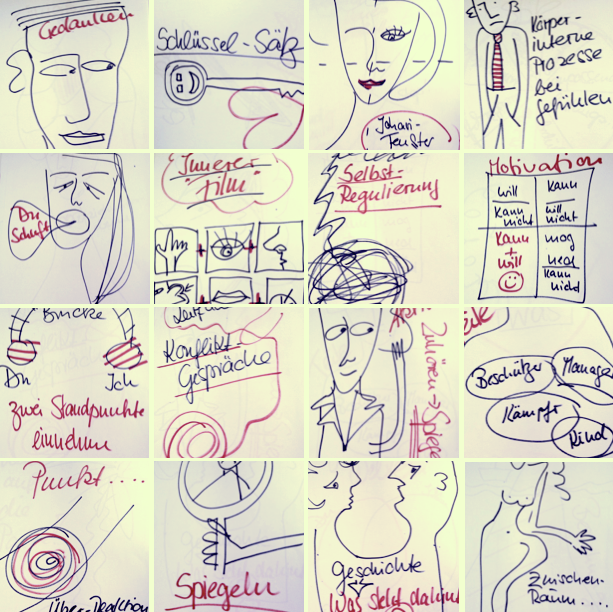 Gedanken
Schlüssel-Sätze
Johari-
Fenster
Körper-
interne
Prozesse
bei
Gefühlen
Du
Schuft
Innerer
"Film"
Selbst-
Regulierung
Motivation
will
kann
nicht
kann
will
nicht
kann
+
will
mag
kann
nicht
Brücke
Du
Ich
zwei Standpunkte
einnehmen
Konflikt-
Gespräche
Zuhören → Spiege
Beschützer
Manage
Kämpfer
Kind
Punkt....
Über-Reaktion
Spiegeln
Geschichte
Was steht dahin
Zwischen-
Raum....